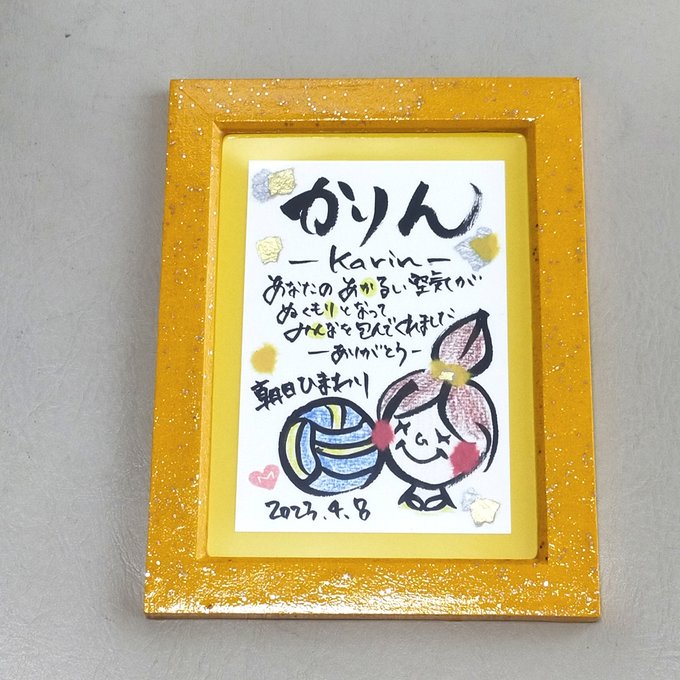 かりん
ーKarinー
あなたの あかるい空気が
ぬくもりとなって
みんなを包んでくれました
ーありがとうー
朝日ひまわり
2023.4.8